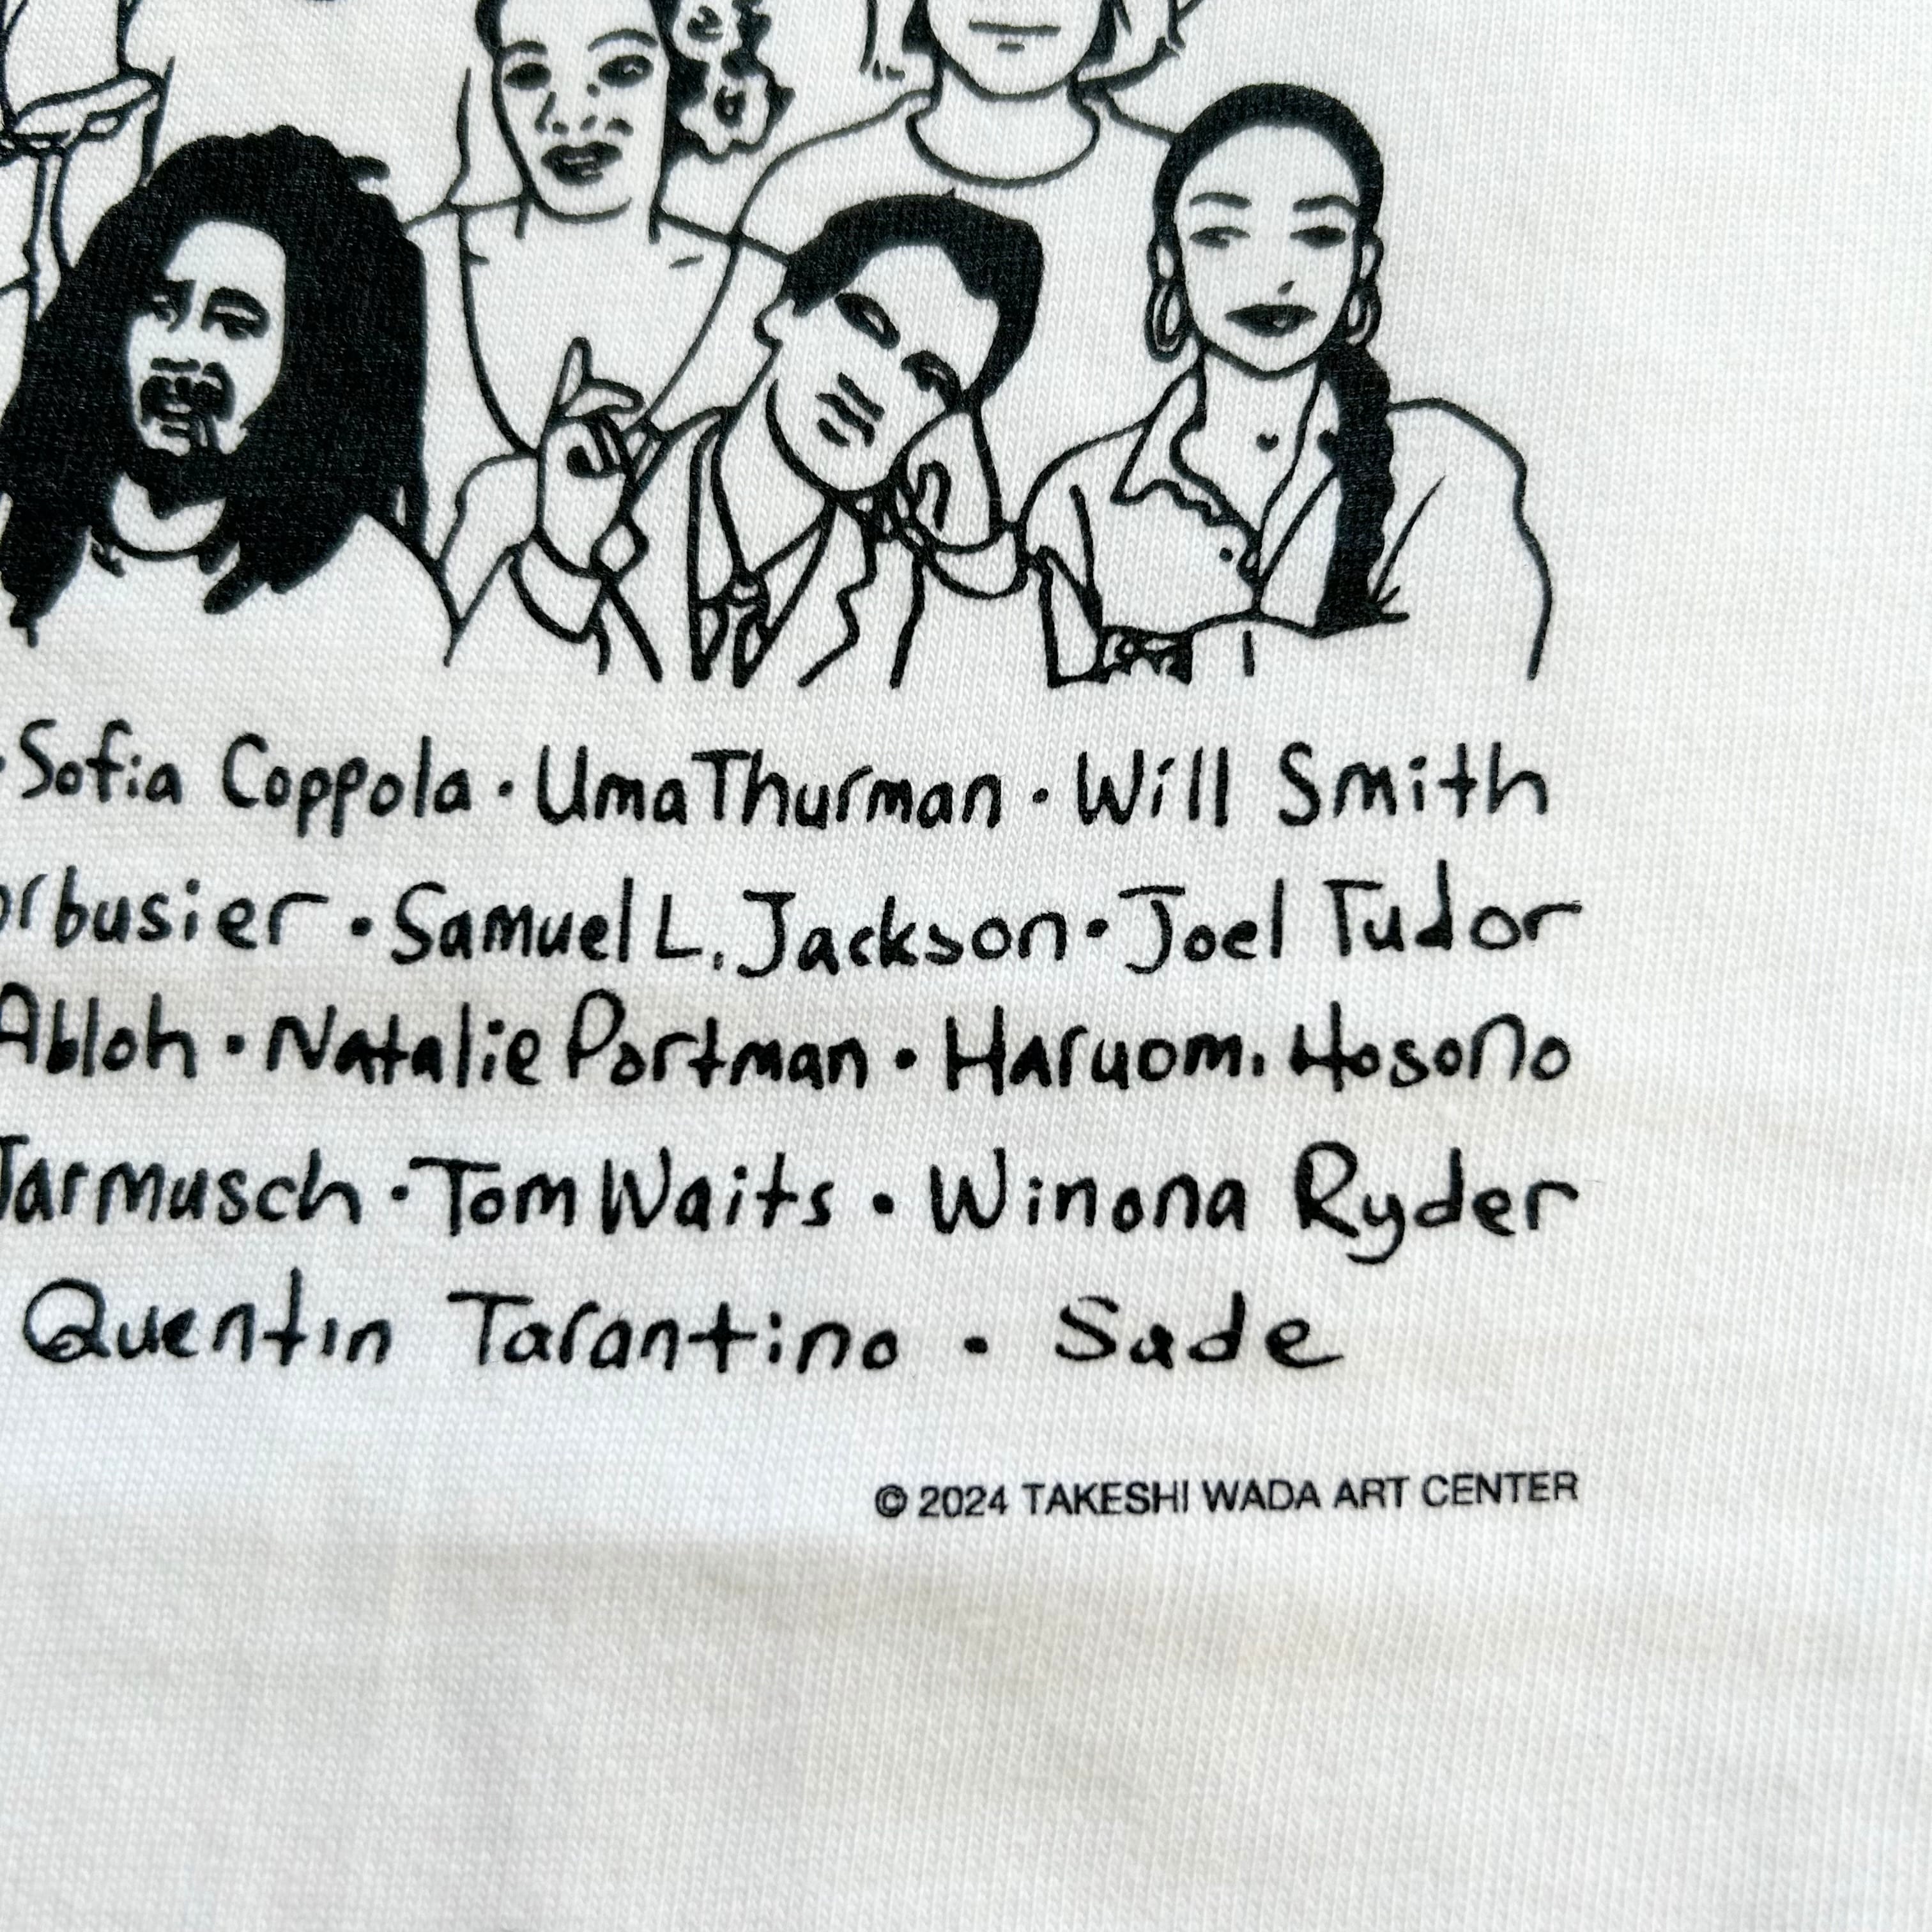 Sofia Coppola · Uma Thurman · Will Smith
orbusier · Samuel L. Jackson · Joel Tudor
Abloh · Natalie Portman · Haruom. Hosono
Jarmusch · Tom Waits · Winona Ryder
Quentin Tarantino · Sade
© 2024 TAKESHI WADA ART CENTER